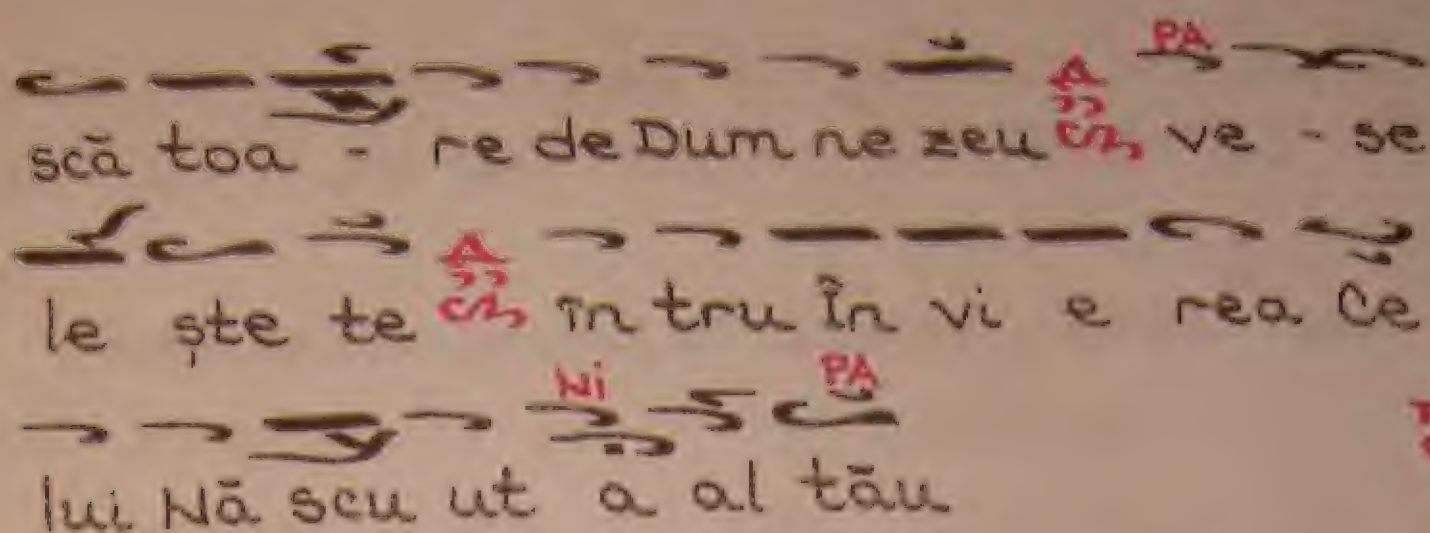 PA
scă toa - re de Dum ne zeu ve - se
le ște te în tru În vi e rea Ce
Ni PA
lui Nă scu ut a al tău